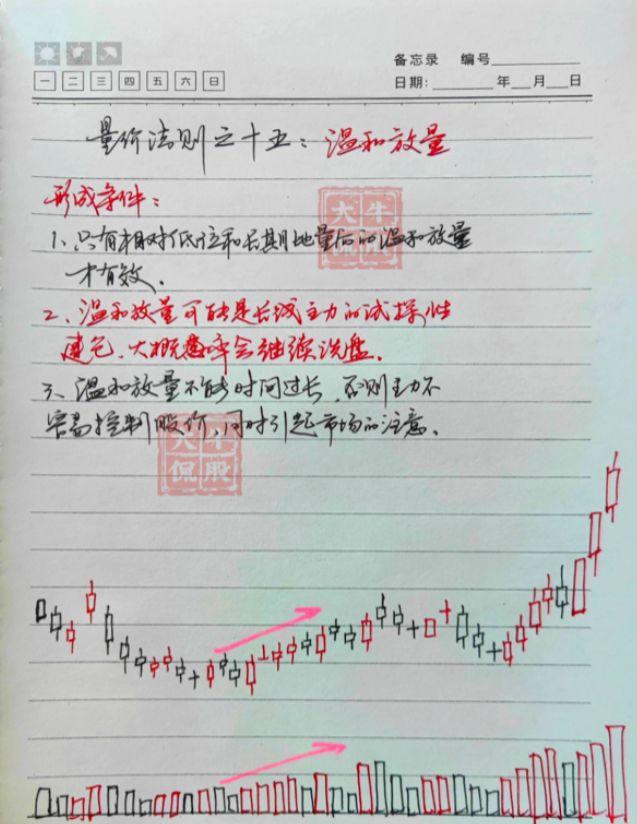 备忘录 编号
一 二 三 四 五 六 日
日期: 年 月 日
量价法则之十五：温和放量
形成条件：
大牛
侃股
1、只有相对低位和长期地量后的温和放量
才有效。
2、温和放量可能是长线主力的试探性
建仓、大概率会继续洗盘。
3、温和放量不能时间过长，否则主力不
容易控制股价，同时引起市场的注意。
大牛
侃股